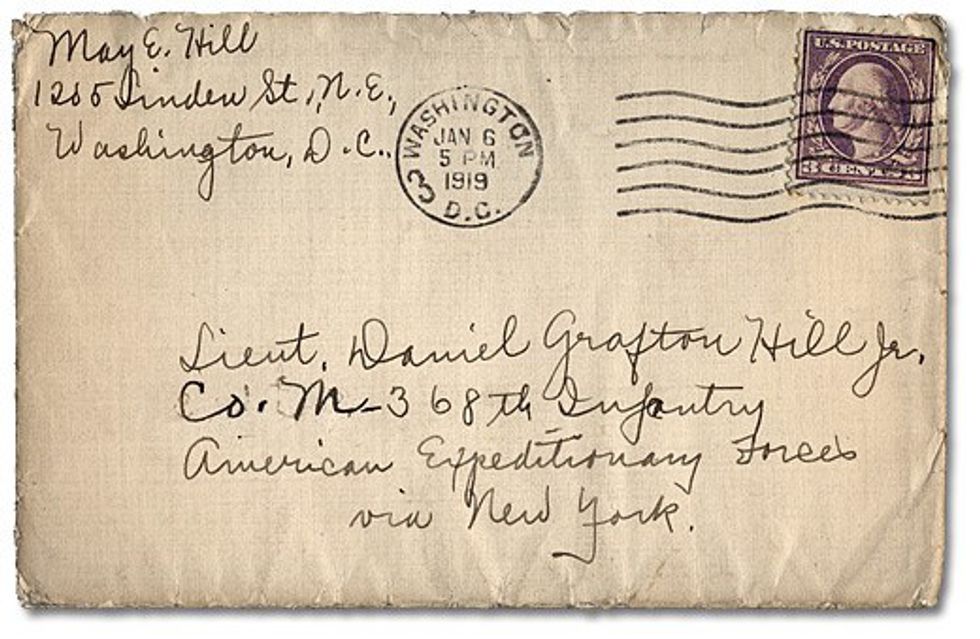 May E. Hill
1205 Linden St., N.E.,
Washington, D.C..
WASHINGTON
JAN 6
5 PM
1919
3
D.C.
U.S. POSTAGE
3 CENTS 3
Lieut. Daniel Grafton Hill Jr.
Co. M - 368th Infantry
American Expeditionary Forces
via New York.